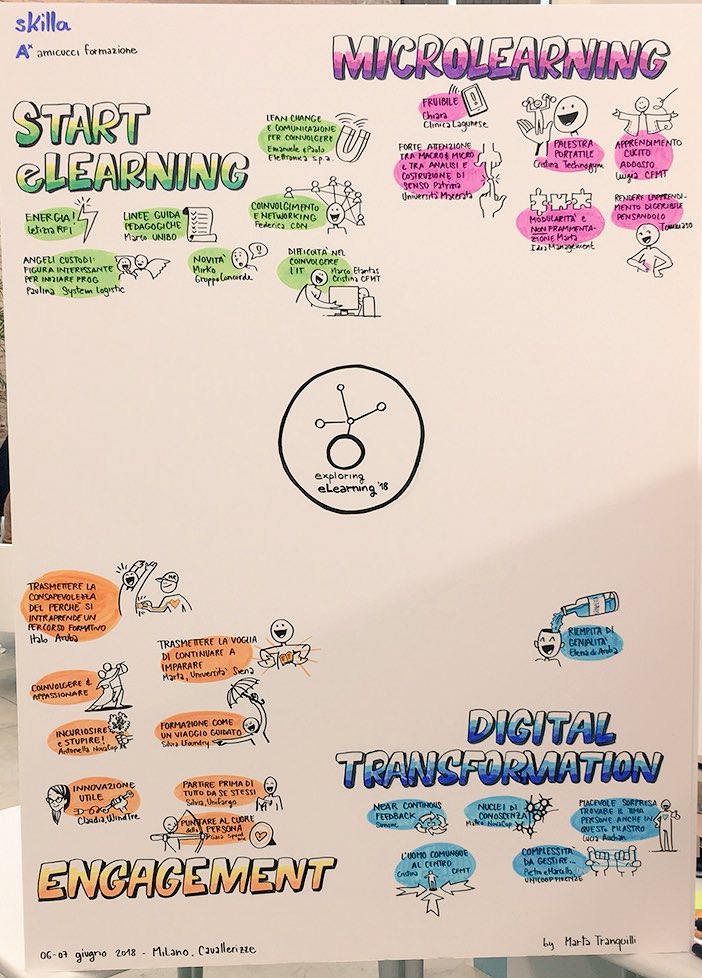 skilla
amicucci formazione
MICROLEARNING
START
eLEARNING
LEAN CHANGE
E COMUNICAZIONE
PER COINVOLGERE
Emanuele e Paolo
Elettronica S.p.a.
ENERGIA!
Letizia RFI
LINEE GUIDA
PEDAGOGICHE
Marco UNIBO
COINVOLGIMENTO
E NETWORKING
Federica CDN
ANGELI CUSTODI:
FIGURA INTERESSANTE
PER INIZIARE PROG
Paulina System Logistic
NOVITÀ
Mirko
Gruppo Concorde
DIFFICOLTÀ NEL
COINVOLGERE
L'IT
Marco Elantas
Cristina CFMT
FRUIBILE
Chiara
Clinica Lagunese
FORTE ATTENZIONE
TRA MACRO E MICRO
E TRA ANALISI E
COSTRUZIONE DI
SENSO Patrizia
Università Macerata
PALESTRA
PORTATILE
Cristina Technogym
APPRENDIMENTO
CUCITO
ADDOSSO
Luigia CFMT
MODULARITÀ E
NON FRAMMENTA-
ZIONE Marta
Idea Management
RENDERE L'APPRENDI-
MENTO DIGERIBILE
PENSANDOLO
Tommaso
exploring
eLearning '18
TRASMETTERE LA
CONSAPEVOLEZZA
DEL PERCHÉ SI
INTRAPRENDE UN
PERCORSO FORMATIVO
Italo Aruba
TRASMETTERE LA VOGLIA
DI CONTINUARE A
IMPARARE
Marta, Università Siena
COINVOLGERE &
APPASSIONARE
INCURIOSIRE
e STUPIRE!
Antonella NovaCoop
FORMAZIONE COME
UN VIAGGIO GUIDATO
Silvia
INNOVAZIONE
UTILE
Claudia, WindTre
PARTIRE PRIMA DI
TUTTO DA SE STESSI
Silvia, Unifargo
PUNTARE AL CUORE
della PERSONA
ENGAGEMENT
RIEMPITA DI
GENIALITÀ
Elena di Aruba
DIGITAL
TRANSFORMATION
NEAR CONTINOUS
FEEDBACK
Simone
NUCLEI DI
CONOSCENZA
NovaCoop
PIACEVOLE SORPRESA
TROVARE IL TEMA
PERSONE ANCHE IN
QUESTO PILASTRO
Lucia Auchan
L'UOMO COMUNQUE
AL CENTRO
Cristina CFMT
COMPLESSITÀ
DA GESTIRE...
Pietro e Marcello
UNICOOP FIRENZE
06-07 giugno 2018 - Milano, Cavallerizze
by Marta Tranquilli